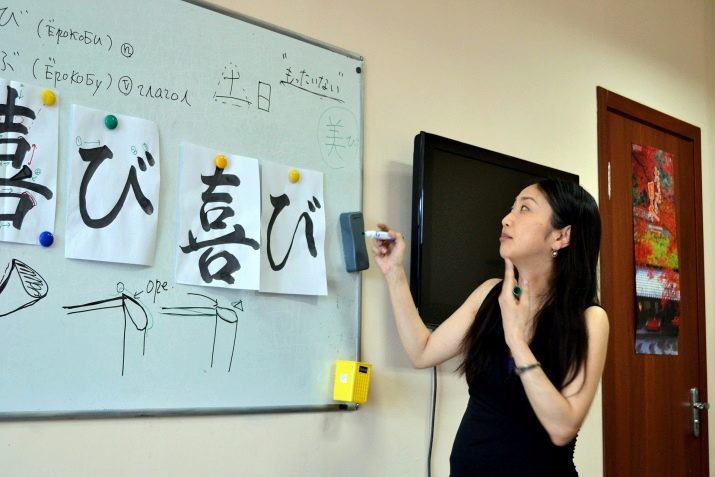 び (ЁРОКОБИ) n
ぶ (ЁРОКОБУ) v глагол
土日
"もったいない"
美
喜び
喜び